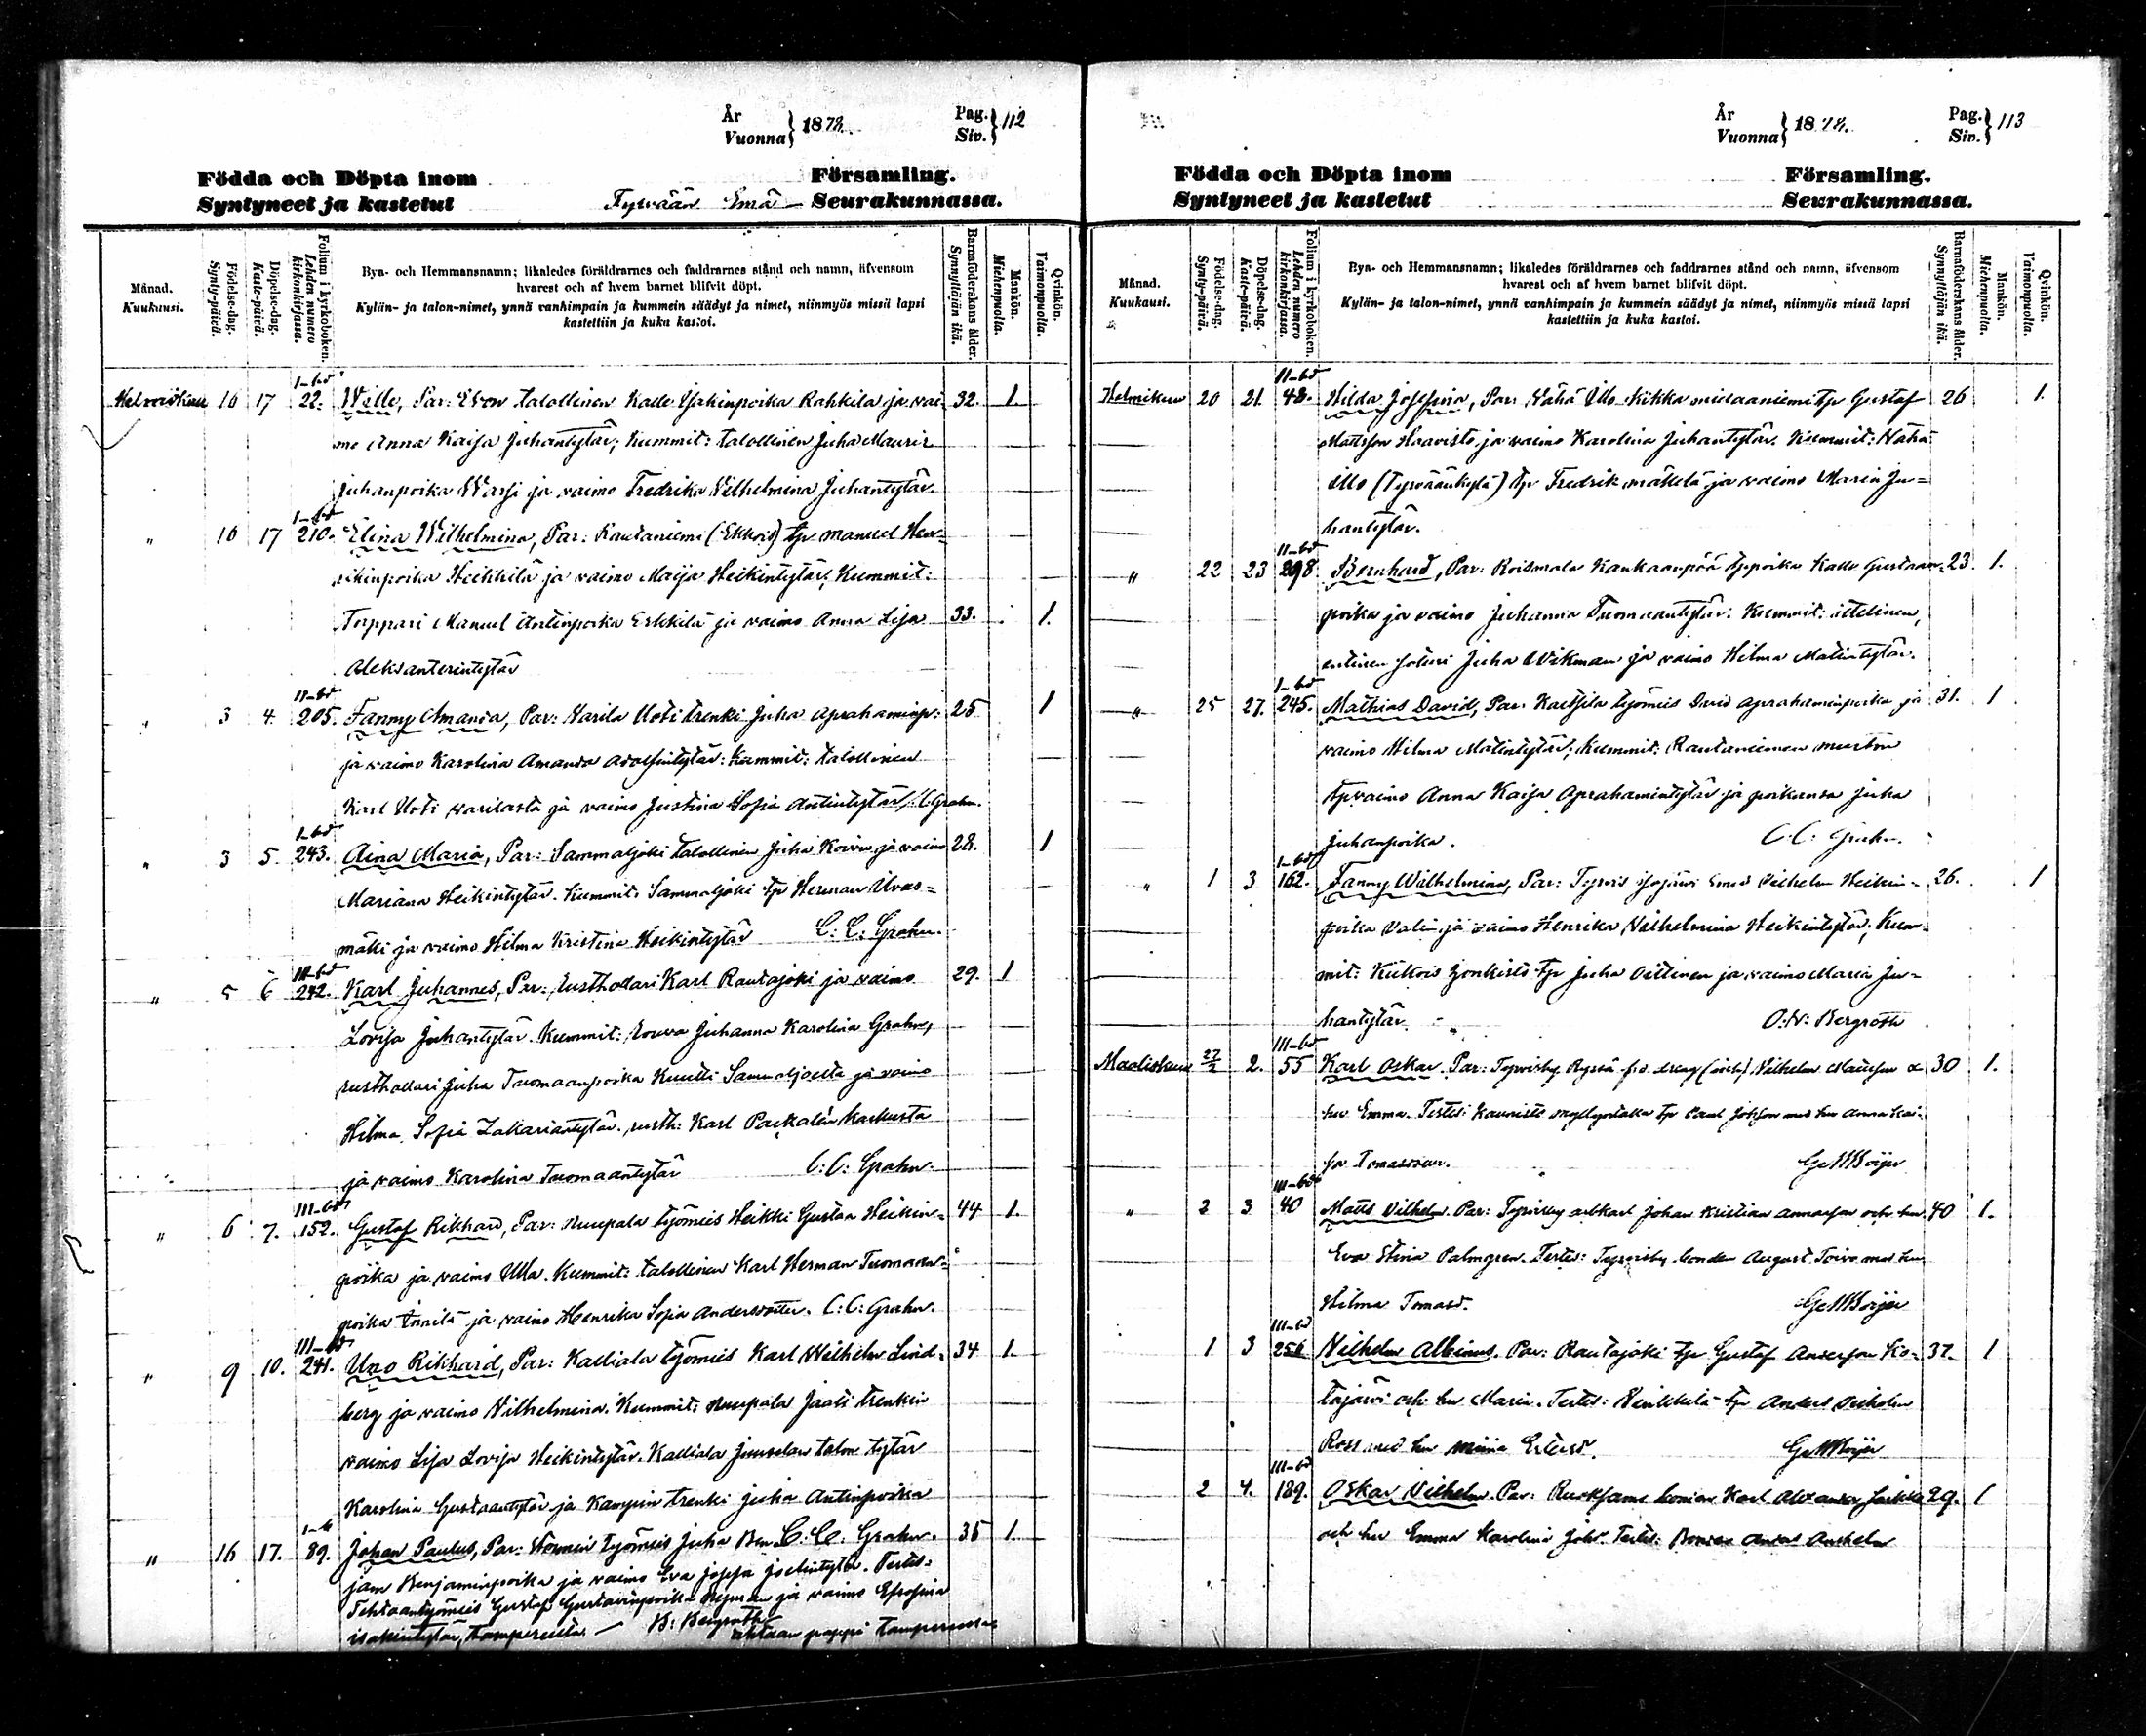 År
Vuonna } 1878. Pag.
Siv. } 112
Födda och Döpta inom Församling.
Syntyneet ja kastetut Tyrvään Emä Seurakunnassa.
Månad.
Kuukausi.
Födelse-dag.
Synty-päivä.
Döpelse-dag.
Kaste-päivä.
Folium i kyrkoboken.
Lehden numero
kirkonkirjassa.
Bya- och Hemmansnamn; likaledes föräldrarnes och faddrarnes stånd och namn, äfvensom
hvarest och af hvem barnet blifvit döpt.
Kylän- ja talon-nimet, ynnä vanhimpain ja kummein säädyt ja nimet, niinmyös missä lapsi
kastettiin ja kuka kastoi.
Barnaföderskans ålder.
Synnyttäjän ikä.
Mankön.
Miehenpuolta.
Qvinkön.
Vaimonpuolta.
I-bd
16 17 22. Wille, Par: talollinen Kalle Rahkila ja vai- 32. 1.
mo Anna Kaisa Juhantytär; Kummit: talollinen Juha Mauris
Juhanpoika ja vaimo Fredrika Vilhelmina Juhantytär.
I-bd
" 16 17 210. Elina Wilhelmina, Par: Rautaniemi tp manuel Hen-
rikinpoika Heikkilä ja vaimo Maija Heikintytär; Kummit:
Torppari Manuel Antinpoika Erkkilä ja vaimo Anna Lisa 33. 1.
Aleksanterintytär
II-bd
" 3 4. 205. Fanny Amanda, Par: Varila Uoti trenki Juha Aprahaminp: 25 1
ja vaimo Karolina Amanda Adolfintytär: Kummit: talollinen
Karl Uoti varilasta ja vaimo Justina Sofia Antintytär/. C. Grahn.
I-bd
" 3 5. 243. Aina Maria, Par: Sammaljoki talollinen Juha Koivu ja vaimo 28. 1
Mariana Heikintytär. Kummit: Sammaljoki tp Herman
mäki ja vaimo Hilma Kristina Heikintytär C: C: Grahn.
II-bd
" 5 6 242. Karl Juhannes, Par: Rusthollari Karl Rautajoki ja vaimo 29. 1
Lovisa Juhantytär. Kummit: Rouva Juhanna Karolina Grahn,
rusthollari Juha Tuomaanpoika Knutti Sammaljoelta ja vaimo
Hilma Sofia Zakariantytär. rusth: Karl Karkusta
ja vaimo Karolina Tuomaantytär C: C: Grahn.
III-bd
" 6 7. 152. Gustaf Rikhard, Par: Nuupala työmies Heikki Gustaa Heikin- 44 1.
poika ja vaimo Ulla. Kummit: talollinen Karl Herman Tuomaan-
poika Knuila ja vaimo Henrika Sofia Andersdotter. C: C: Grahn.
III-bd
" 9 10. 241. Uno Rikhard, Par: Kalliala työmies Karl Wilhelm Lind- 34 1.
berg ja vaimo Vilhelmina. Kummit: Nuupala Jaati trenkin
vaimo Lisa Lovisa Heikintytär. Kalliala Juuselan talon tytär
Karolina Gustaantytär ja Kampin trenki Juha Antinpoika
" 16 17. 89. Johan Paulus, Par: työmies Juha Ben C: C: Grahn. 35 1.
jam Benjaminpoika ja vaimo Eva Josefa Joelintytär. Testes:
Tehtaantyömies Gustaf Gustavinpoika Nyman ja vaimo
Isakintytär, Tampereelta. — K: Bergroth
tehtaan pappi Tampereella
År
Vuonna } 1878. Pag.
Siv. } 113
Födda och Döpta inom Församling.
Syntyneet ja kastetut Seurakunnassa.
Månad.
Kuukausi.
Födelse-dag.
Synty-päivä.
Döpelse-dag.
Kaste-päivä.
Folium i kyrkoboken.
Lehden numero
kirkonkirjassa.
Bya- och Hemmansnamn; likaledes föräldrarnes och faddrarnes stånd och namn, äfvensom
hvarest och af hvem barnet blifvit döpt.
Kylän- ja talon-nimet, ynnä vanhimpain ja kummein säädyt ja nimet, niinmyös missä lapsi
kastettiin ja kuka kastoi.
Barnaföderskans ålder.
Synnyttäjän ikä.
Mankön.
Miehenpuolta.
Qvinkön.
Vaimonpuolta.
II-bd
Helmikuu 20 21. 48. Hilda Josefina, Par: Vähä Illo tp Gustaf 26 1.
Mattsson Haavisto ja vaimo Karolina Juhantytär. Kummit: Vähä
illo (Tyrväänkylä) tp Fredrik mäkelä ja vaimo Maria Ju-
hantytär.
II-bd
" 22 23 298 Bernhard, Par: Roismala Kankaanpää tppoika Kalle Gustaan- 23. 1.
poika ja vaimo Juhanna Tuomaantytär: Kummit: itellinen,
entinen Juha Wikman ja vaimo Hilma Matintytär.
I-bd
" 25 27. 245. Mathias David, Par: Kaltsila työmies David Aprahaminpoika ja 31. 1
vaimo Hilma Matintytär; Kummit: Rautaniemen
tpvaimo Anna Kaisa Aprahamintytär ja poikansa Juha
Juhanpoika. C. C: Grahn.
I-bd
" 1 3 162. Fanny Wilhelmina, Par: Tyrvis Vilhelm Heikin- 26. 1
poika Valin ja vaimo Henrika Vilhelmina Heikintytär; Kum-
mit: tp Juha Oittinen ja vaimo Maria Ju-
hantytär O: V: Bergroth
III-bd
Maaliskuu 27/2 2. 55 Karl Oskar. Par: Tyrvisby Ryssä Vilhelm & 30 1.
hu Emma. Testes: tp Paul med hu Anna
sa Tomasson. G. W. Boijer
III-bd
" 2 3 40 Matts Vilhelm. Par: Tyrvisby arbkarl Johan Kristian och hu 40 1.
Eva Stina Palmgren. Testes: Tyrvisby bonden August Toivo med hu
Hilma Tomasd. G. W. Boijer
III-bd
1 3 256 Vilhelm Albinus. Par: Rautajoki tp Gustaf Andersson Ko- 37. 1
tajärvi och hu Maria. Testes: tp Anders
Ross med hu Miina G. W. Boijer
III-bd
2 4. 189. Oskar Vilhelm. Par: bonden Karl Alexander 29. 1
och hu Emma Karolina Johd. Testes: